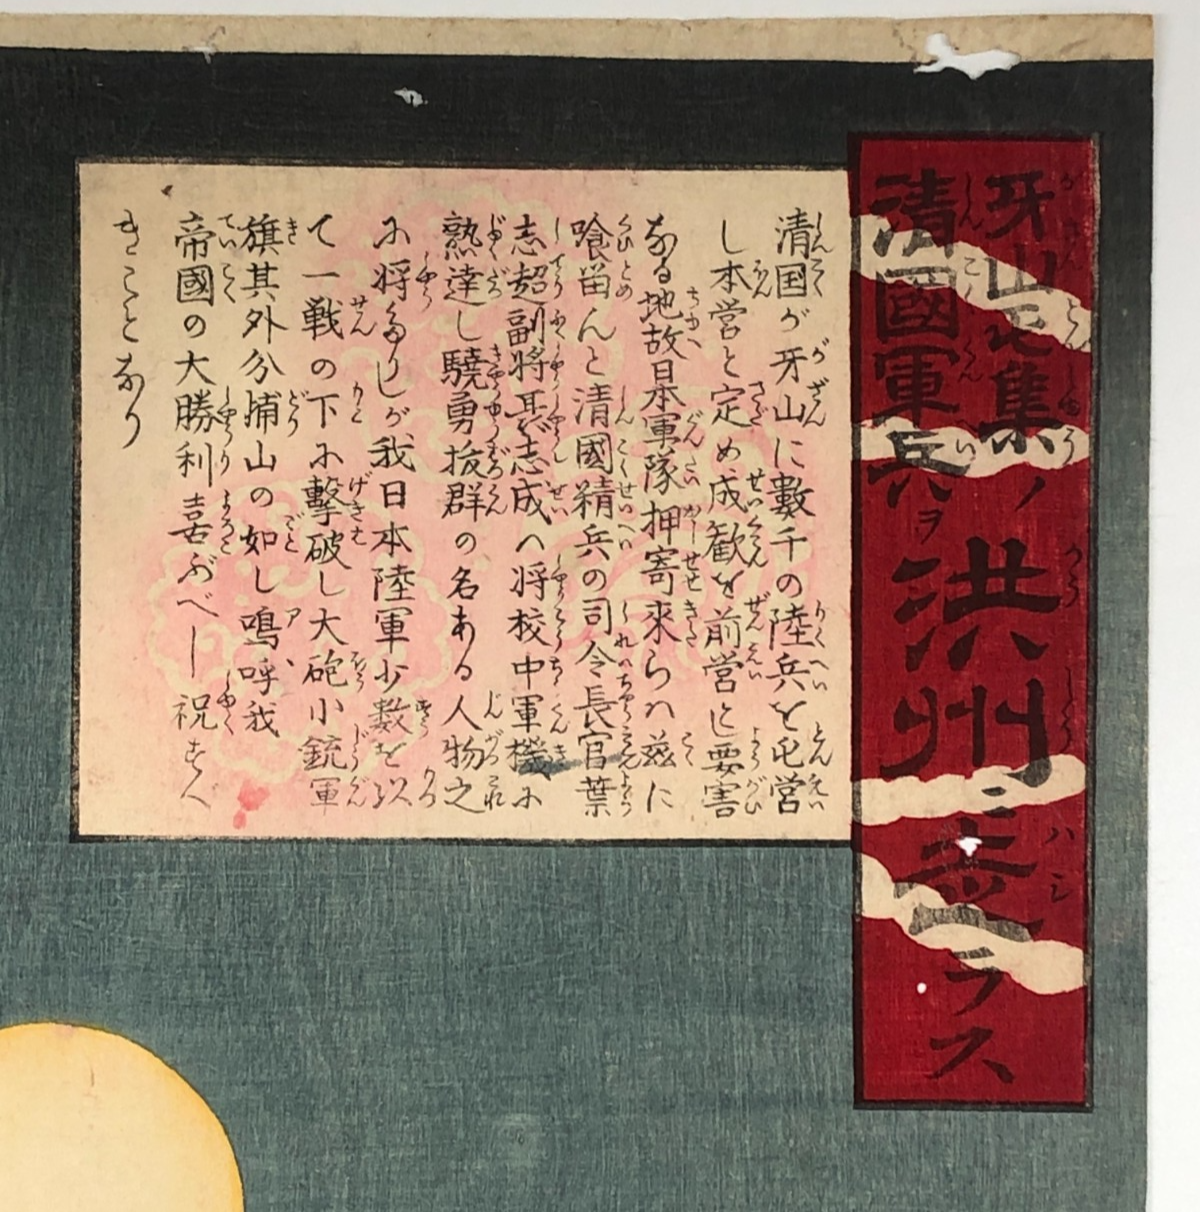 牙山屯集ノ
清國軍兵ヲ
洪州ニ走ラス
清国が牙山に數千の陸兵を屯営
し本営と定め成歓を前営と要害
なる地故日本軍隊押寄来らハ茲に
喰留んと清國精兵の司令長官葉
志超副将聶志成ハ将校中軍機に
熟達し驍勇抜群の名ある人物之
に将たりしが我日本陸軍少数を以
て一戦の下に擊破し大砲小銃軍
旗其外分捕山の如し鳴呼我
帝國の大勝利喜ぶべし祝すべ
きことなり